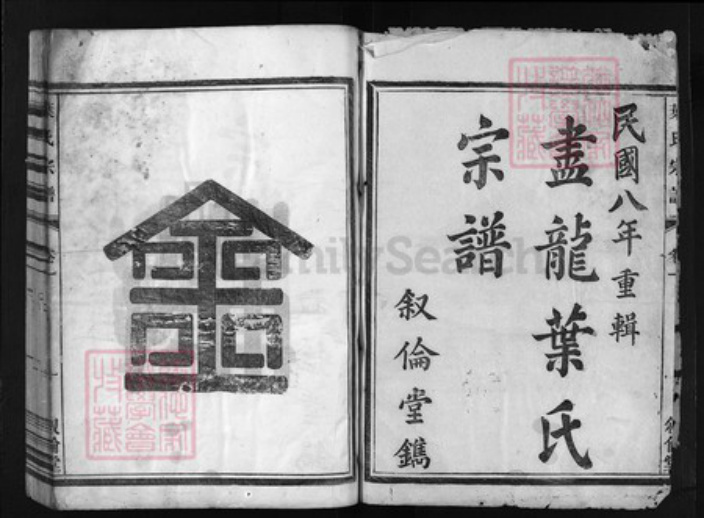 民國八年重輯
盡龍葉氏
宗譜
叙倫堂鐫
金
FamilySearch